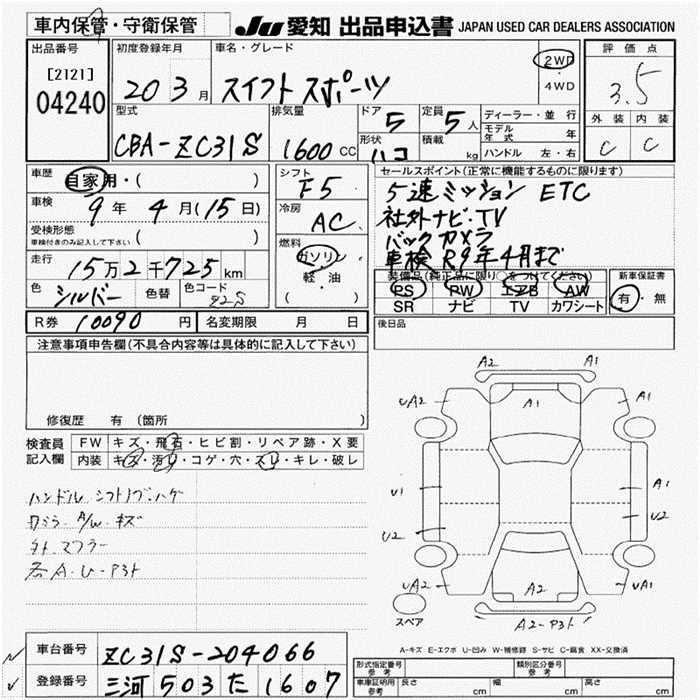 車内保管・守衛保管
JU 愛知 出品申込書 JAPAN USED CAR DEALERS ASSOCIATION
出品番号
[2121]
04240
初度登録年月
20 3月
車名・グレード
スイフトスポーツ
2WD
・
4WD
評価点
3.5
外装 内装
C C
型式
CBA-ZC31S
排気量
1600 CC
ドア 5
形状 ハコ
定員 5人
積載 kg
ディーラー・並行
モデル年式 年
ハンドル 左・右
車歴 自家用・( )
車検 9年 4月(15日)
受検形態
車検付きのみ記入して下さい ( )
走行 15万2千725km
色 シルバー 色替 色コード
シフト F5
冷房 AC
燃料
ガソリン
・
軽・油
( )
セールスポイント(正常に機能するものに限ります)
5速ミッション ETC
社外ナビ・TV
バックカメラ
車検R9年4月まで
装備品(純正品に限り○をつけてください)
PS PW エアB AW
SR ナビ TV カワシート
新車保証書
有・無
R券 10090円 名変期限 月 日
後日品
注意事項申告欄(不具合内容等は具体的に記入して下さい)
修復歴 有 (箇所 )
検査員記入欄
FW キズ・飛石・ヒビ割・リペア跡・X要
内装 キズ・汚れ・コゲ・穴・スレ・キレ・破レ
ハンドル シフトノブ・ハゲ
ガラス・A/W キズ
外 マフラー
各A・U・Pヨト
A2 A1
UA2 A1 A1
U1 A1
U2 U2
UA2 A2 UA1
A2-Pヨト
スペア
A-キズ E-エクボ U-凹み W-補修跡 S-サビ C-腐食 XX-交換済
車台番号 ZC31S-204066
登録番号 三河 503 た 1607
形式指定番号 参考 類別区分番号 参考
車庫証明用 参考 長さ cm 幅 cm 高さ cm